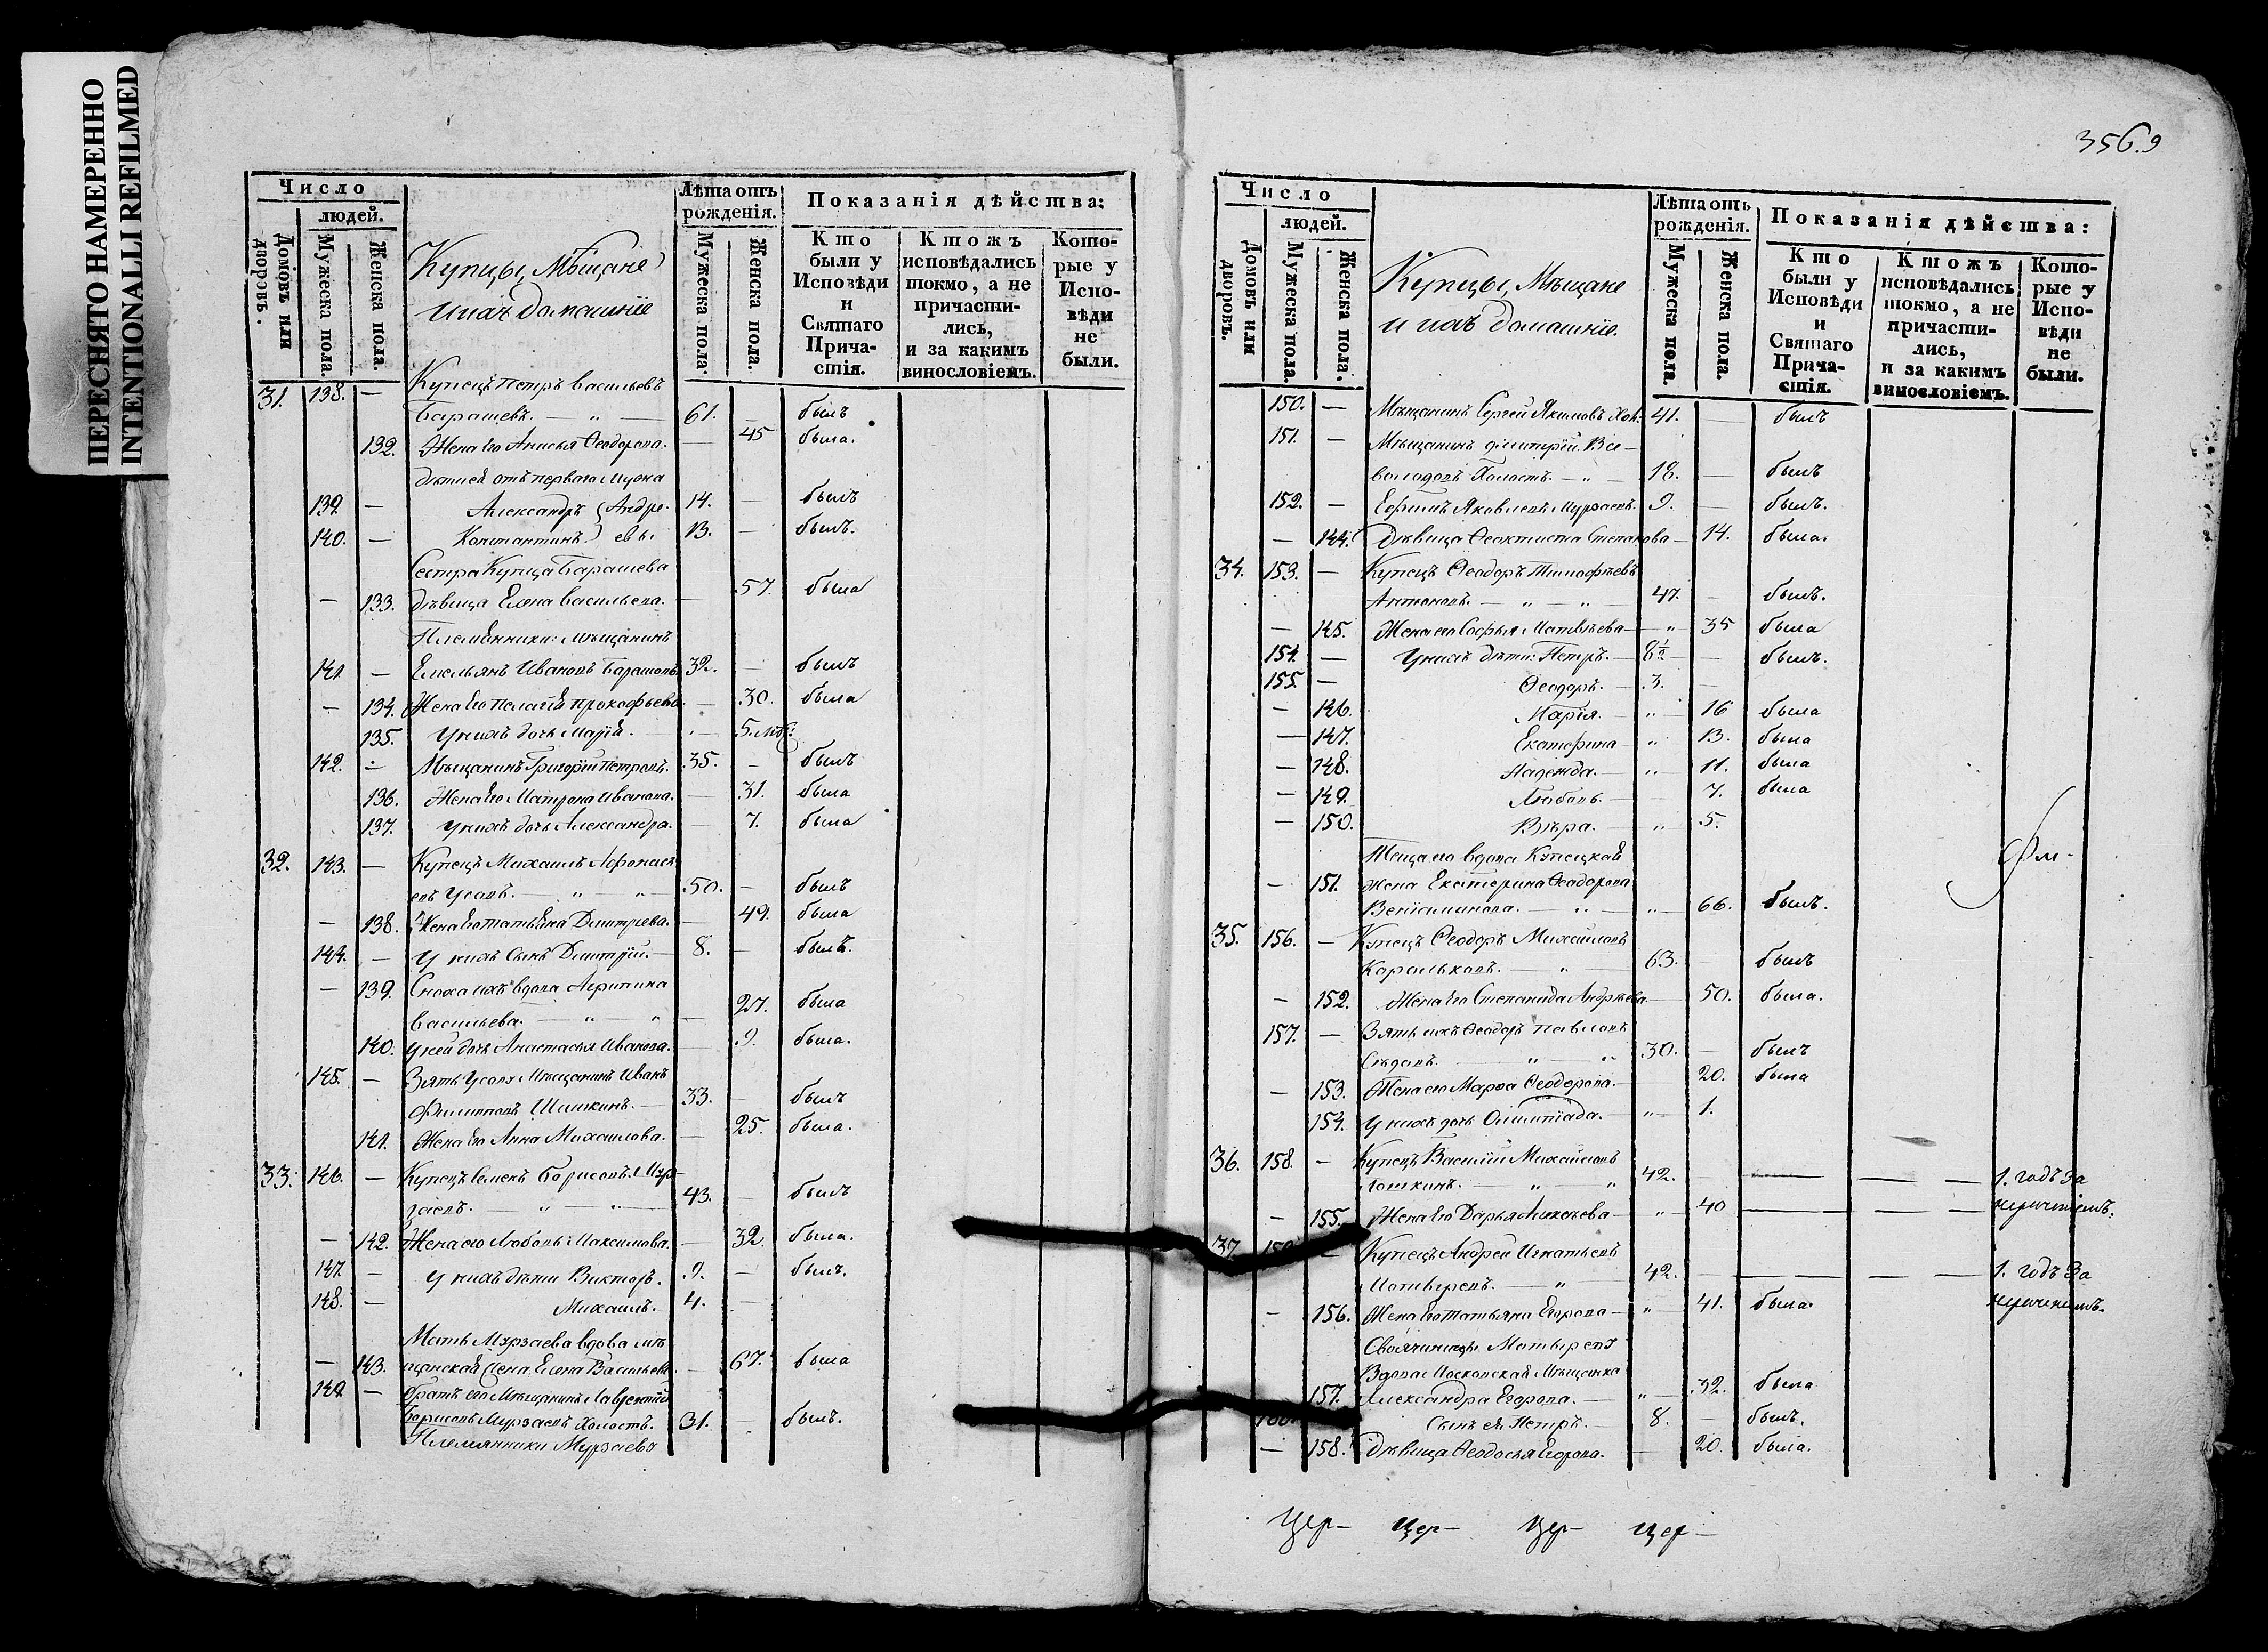 ПЕРЕСНЯТО НАМЕРЕННО
INTENTIONALLI REFILMED
Число
людей.
Домовъ или дворовъ.
Мужеска пола.
Женска пола.
Купцы, Мѣщане
и ихъ домашніе
Лѣта отъ рожденія.
Мужеска пола.
Женска пола.
Показанія дѣйства:
Кто были у Исповѣди и Святаго Причастія.
Ктожъ исповѣдались токмо, а не причастились, и за какимъ винословіемъ.
Которые у Исповѣди не были.
31. 138. — Купецъ Петръ Васильевъ
Барашевъ. — „ — 61. — былъ
132. Жена его Анисья Ѳеодорова. — 45 была.
дѣтей отъ перваго мужа
139 — Александръ (Андре- 14. — былъ
140. — Константинъ) евы 13. — былъ.
Сестра Купца Барашева
— 133. дѣвица Елена Васильева. — 57. была
Племянники: мѣщанинъ
141 — Емельянъ Ивановъ Барашевъ 32. — былъ
— 134. Жена его Пелагея Прокофьева — 30. была
135. У нихъ дочь Марія. — 5. мѣс:
142. — Мѣщанинъ Григорій Петровъ. 35. — былъ
136. Жена его Матрона Иванова. — 31. была
137. У нихъ дочь Александра. — 7. была
32. 143. — Купецъ Михаилъ Афонась
евъ Усовъ. — „ — „ — 50. — былъ
— 138. Жена его Татьяна Дмитріева. — 49. была
144. — У нихъ Сынъ Дмитрій. — 8. — былъ.
— 139. Сноха ихъ вдова Агрипина
Васильева. — „ — „ — 27. была
140. У ней дочь Анастасья Иванова. — 9. была.
145. — Зять Усова Мѣщанинъ Иванъ
Филипповъ Шишкинъ. — 33. — былъ
141. Жена его Анна Михаилова. — 25. была.
33. 146. — Купецъ Семенъ Борисовъ Мур-
заевъ. — „ — „ — 43. — былъ
— 142. Жена его Любовь Максимова. — 32. была.
147. — У нихъ дѣти Викторъ. 9. — былъ.
148. — Михаилъ. — 4. —
Мать Мурзаева вдова мѣ
— 143. щанская жена Елена Васильева. — 67. была
149 — братъ его Мѣщанинъ Лаврентій
Борисовъ Мурзаевъ Холостъ. 31. — былъ.
Племянники Мурзаева
356. 9
Число
людей.
Домовъ или дворовъ.
Мужеска пола.
Женска пола.
Купцы, Мѣщане
и ихъ домашніе.
Лѣта отъ рожденія.
Мужеска пола.
Женска пола.
Показанія дѣйства:
Кто были у Исповѣди и Святаго Причастія.
Ктожъ исповѣдались токмо, а не причастились, и за какимъ винословіемъ.
Которые у Исповѣди не были.
150. — Мѣщанинъ Сергей Якимовъ Хол: 41. — былъ
151. — Мѣщанинъ Димитрій Все-
володовъ Холостъ. — „ — 18. — былъ
152. — Ефимъ Яковлевъ Мурзаевъ. 9. — былъ.
— 144. Дѣвица Ѳеоктиста Степанова — 14. была.
34. 153. — Купецъ Ѳеодоръ Тимофѣевъ
Антоновъ. — „ — „ — 47. — былъ.
— 145. Жена его Софья Матвѣева — „ 35 была
154. — У нихъ дѣти: Петръ. — 8½ — былъ.
155. — Ѳеодоръ. — 3. —
— 146. Марія. — „ — 16 была
— 147. Екатерина — „ 13. была
— 148. Надежда. — „ — 11. была
— 149. Любовь. — 7. была
— 150. Вѣра. — „ 5.
Теща его вдова Купецкая
— 151. жена Екатерина Ѳеодорова
Веніаминова. — „ — „ — 66. былъ.
35. 156. — Купецъ Ѳеодоръ Михаиловъ
Корольковъ. — „ — 63. — былъ
— 152. Жена его Степанида Андрѣева — 50. была.
157. — Зять ихъ Ѳеодоръ Павловъ
Сѣдовъ. — „ — „ 30. — былъ
— 153. Жена его Марѳа Ѳеодорова. — 20. была
154. У нихъ дочь Олимпіада. — „ — 1.
36. 158. — Купецъ Василій Михаиловъ
Лошкинъ. — „ — „ 42. — — — — 1. годъ за
— 155. Жена его Дарья Алексѣева — „ 40 — — — нераченіемъ.
37. 159. — Купецъ Андрей Игнатьевъ
Мотыревъ. — „ — 42. — — — — 1. годъ за
— 156. Жена его Татьяна Егорова — „ 41. была. нераченіемъ.
Свояченицы Мотырева
Вдова Московская Мѣщанка
157. Александра Егорова. — „ 32. была
160. Сынъ ея Петръ. — 8. — былъ.
— 158. Дѣвица Ѳеодосья Егорова. — 20. была.
Цер— Цер— Цер— Цер—